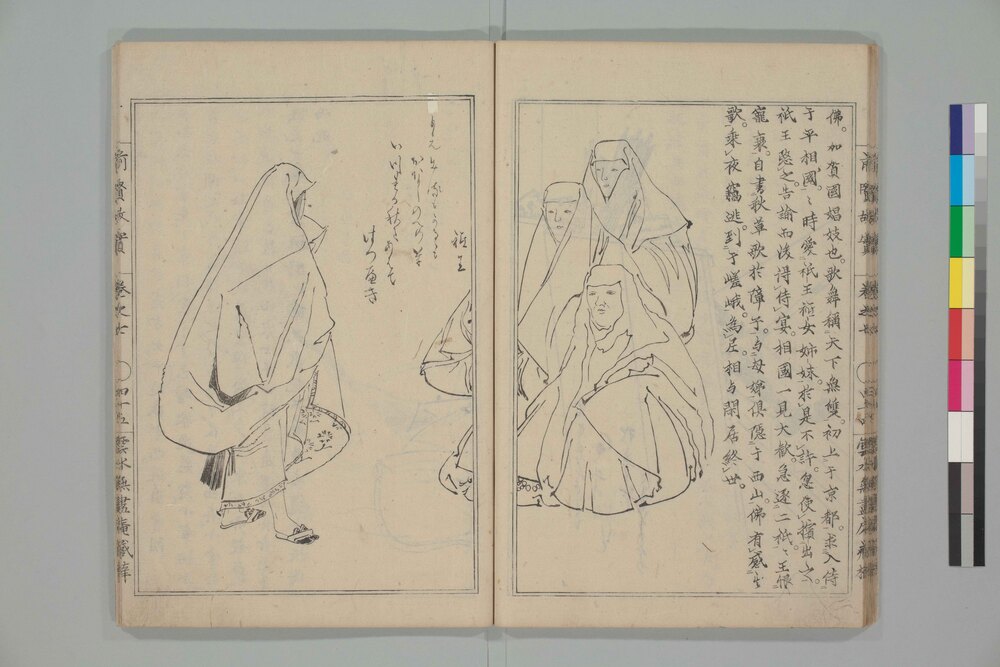 佛。加賀國娼妓也。歌舞稱天下無雙。初上于京都。求入侍
于平相國。〻時愛祇王祇女姉妹。於是不許。怱使擯出之。
祇王愍之。告諭而後得侍宴。相國一見大歡。急逐二祇。〻王恨
寵衰。自書秋草歌於障子。与母娣倶隱于西山。佛有感其
歌。乘夜竊逃。到于嵯峨。為尼。相与閑居終世。
祇王
もえ出るも
かるゝも
おなし のへの草
いつれか秋に
あはて
はつへき
前賢故實
卷之七
雲水無盡庵藏梓